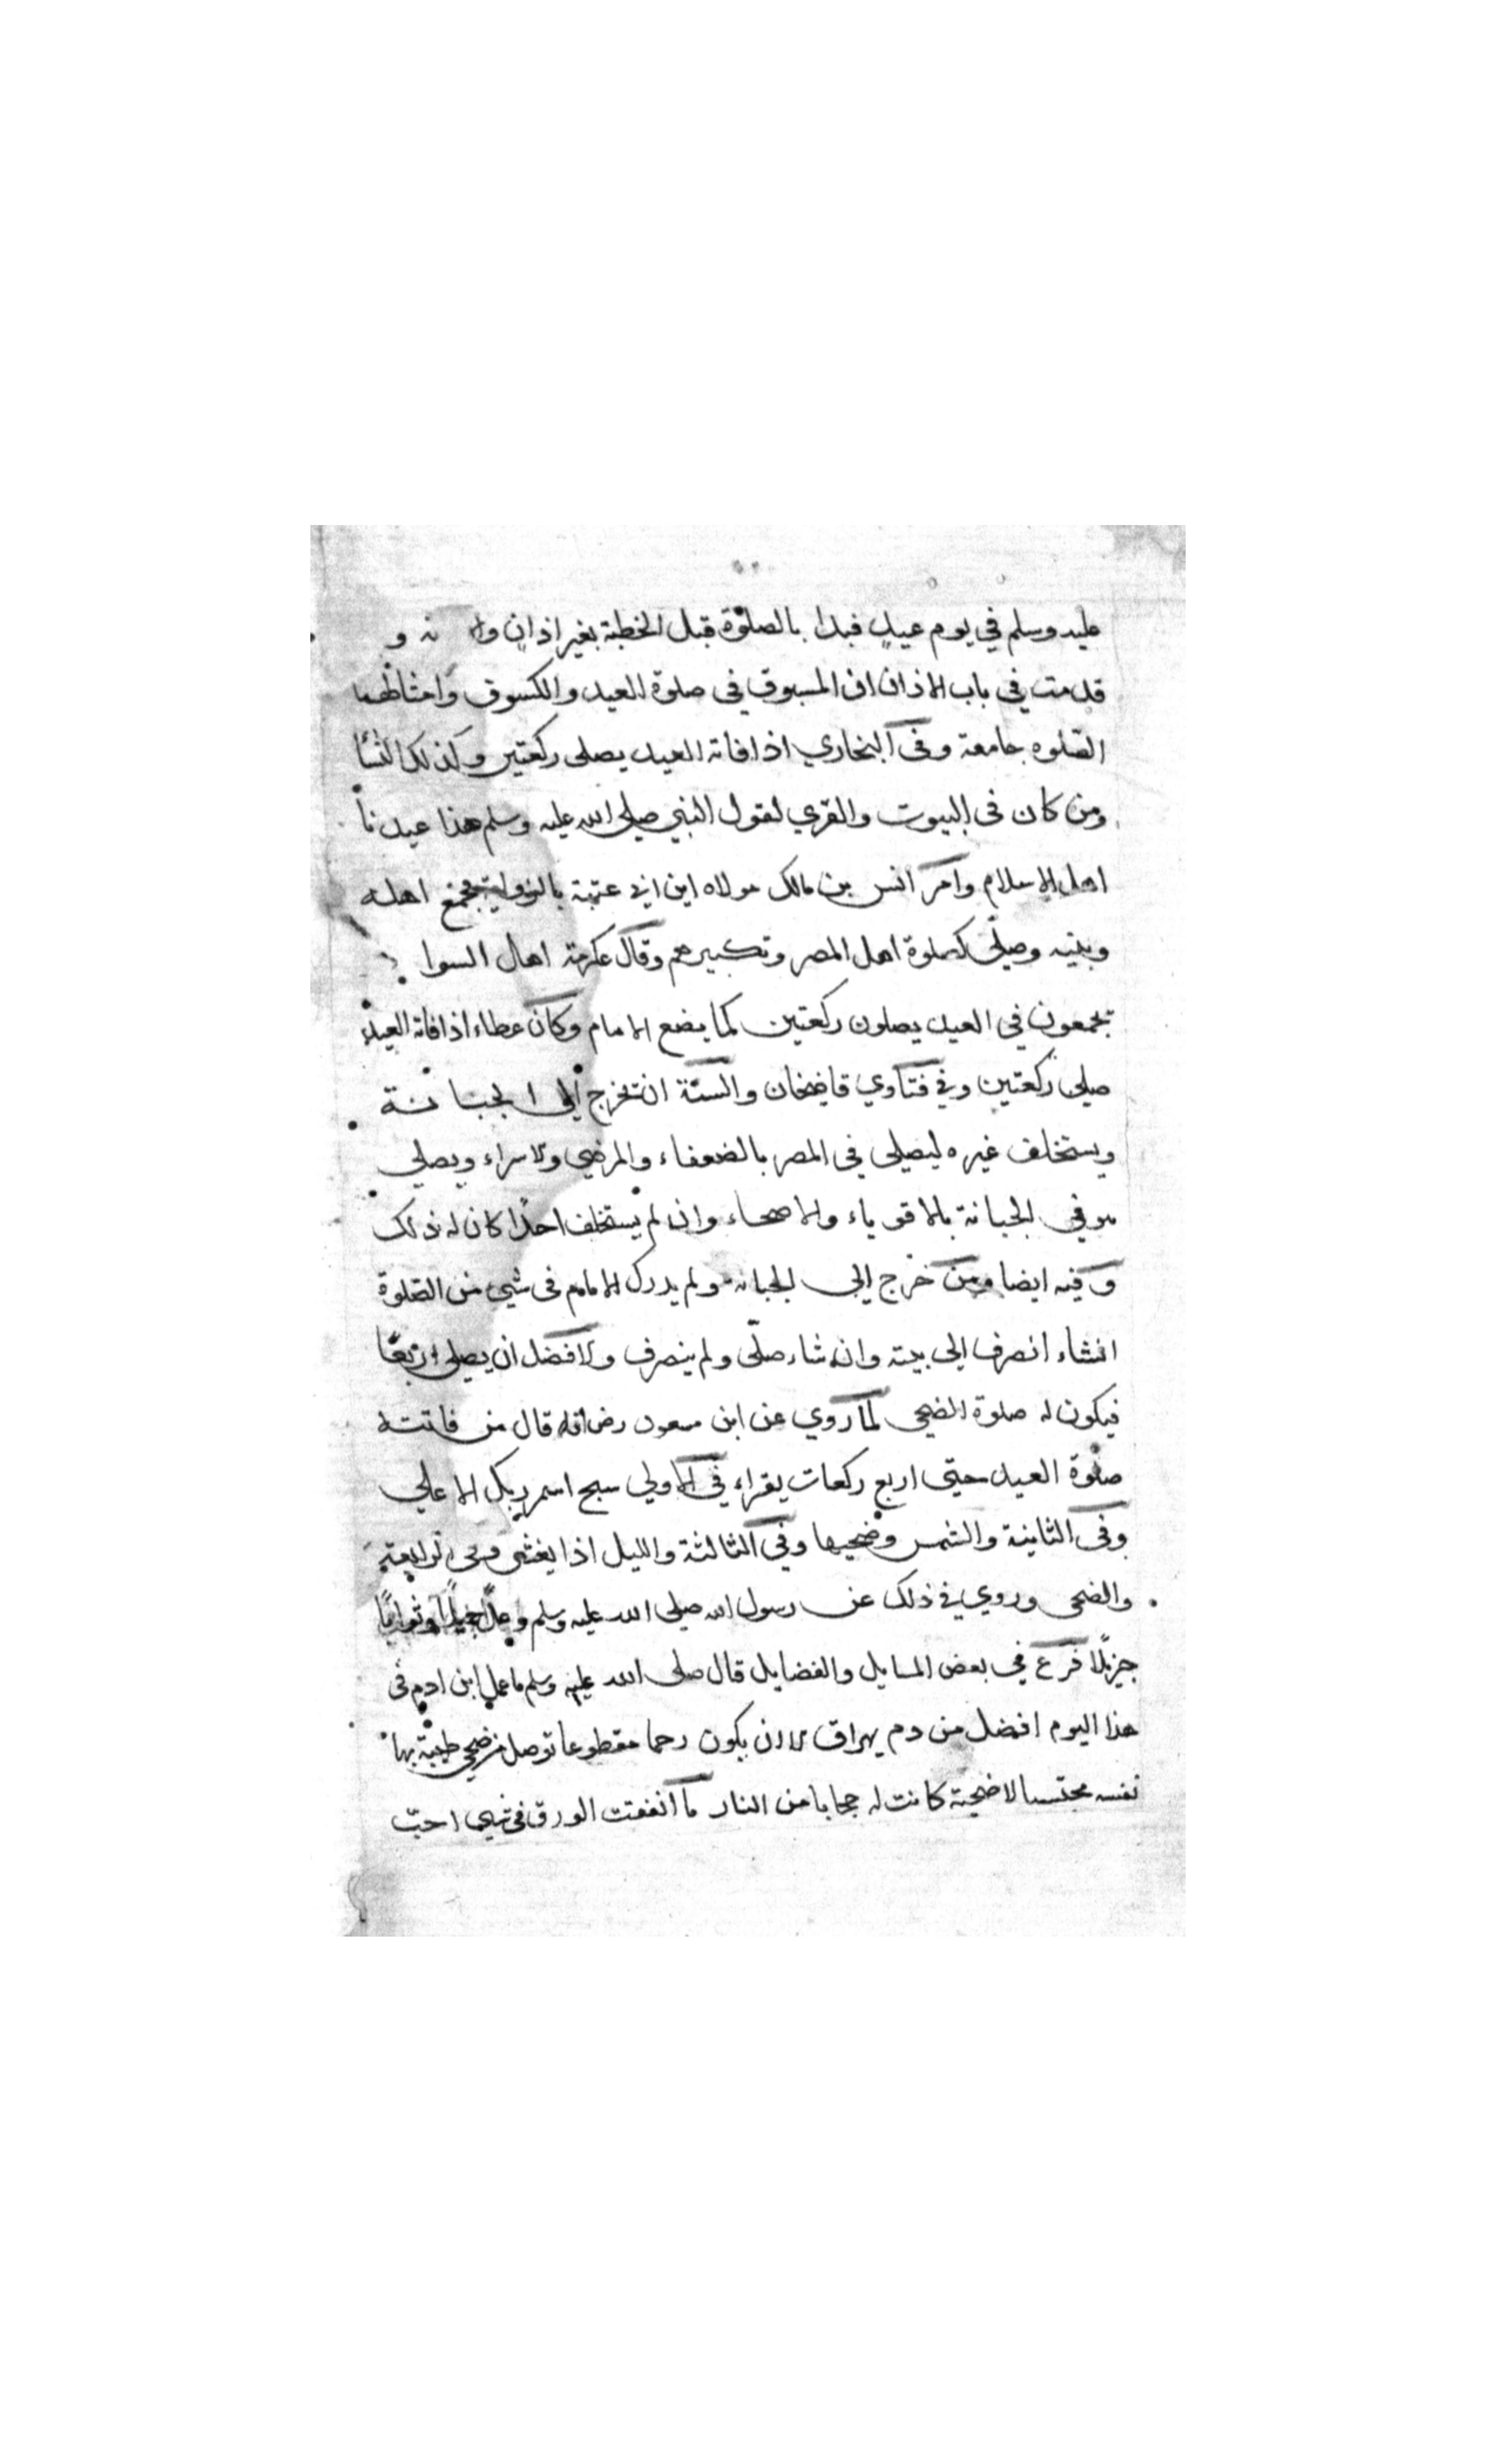 عليه وسلم في يوم عيدٍ فبدا بالصلوة قبل الخطبة بغير اذانٍ ولا و
قدمت في باب الاذان ان المسبوق في صلوة العيد والكسوف وامثالهما
الصلوه جامعة وفى البخاري اذا فاته العيد يصلى ركعتين وكذلك النسا
ومن كان فى البيوت والقري لقول النبي صلى الله عليه وسلم هذا عيدنا
اهل الاسلام وامر انس بن مالك مولاه ابن ابي عتبة بالزواية فجمع اهله
وبنيه وصلّى كصلوة اهل المصر وتكبيرهم وقال عكرمة اهل السوا
يجمعون في العيد يصلون ركعتين كما يضع الامام وكان عطاء اذا فاته العيد
صلى ركعتين وفي فتاوي قاضخان والسنّة ان تخرج الى الجبانة
ويستخلف غيره ليصلى فى المصر بالضعفاء والمرضي ولاسراء ويصلي
هو في الجبانة بالاقوياء والاصحاء وان لم يستخلف احدًا كان له ذلك
وفيه ايضا ومن خرج الي الجبانة ولم يدرك الامام فى شي من الصلوة
انشاء انصرف الي بيته وان شاء صلّى ولم ينصرف ولافضل ان يصلي اربعًا
فيكون له صلوة الضحى لما روي عن ابن مسعود رض انه قال من فاتته
صلوة العيد حتى اربع ركعات يقراء في الاولي سبح اسم ربك الاعلي
وفى الثانية والشمس وضحيها وفي الثالثة والليل اذا يغشى وفى الرابعة
والضحى وروي في ذلك عن رسول الله صلى الله عليه وسلم وعدًا جميلًا وثوابًا
جزيلًا فرع في بعض المسايل والفضايل قال صلى الله عليه وسلم ما عمل ابن ادم فى
هذا اليوم افضل من دم يهراق الا ان يكون رحما مقطوعا توصل من ضحي طيبة بها
نفسه محتسبا لاضحيته كانت له حجابا من النار ما انفقت الورق فى شي احبّ